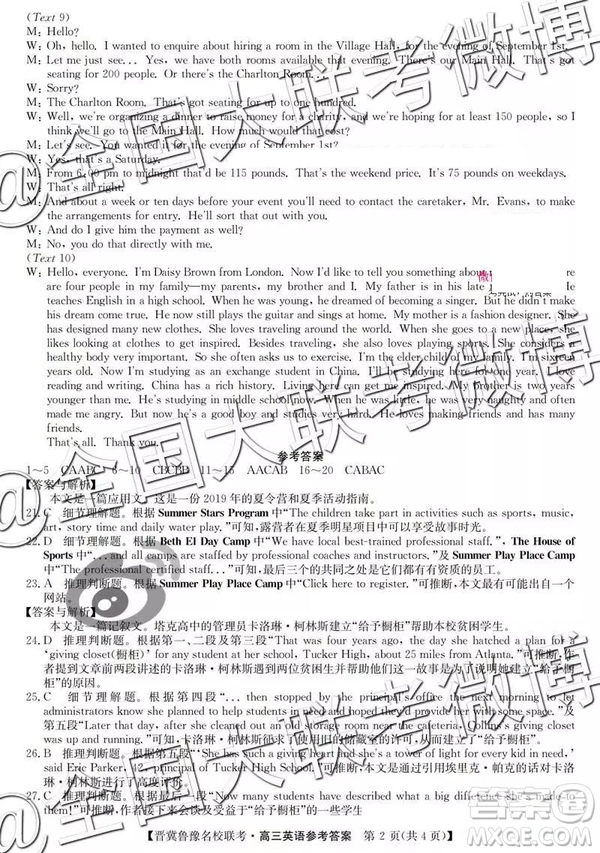 (Text 9)
M: Hello?
W: Oh, hello. I wanted to enquire about hiring a room in the Village Hall, for the evening of September 1st.
M: Let me just see... Yes, we have both rooms available that evening. There's our Main Hall. That's got
seating for 200 people. Or there's the Charlton Room...
W: Sorry?
M: The Charlton Room. That's got seating for up to one hundred.
W: Well, we're organizing a dinner to raise money for a charity, and we're hoping for at least 150 people, so I
think we'll go to the Main Hall. How much would that cost?
M: Let's see. You wanted it for the evening of September 1st?
W: Yes, that's a Saturday.
M: From 6:00 pm to midnight that'd be 115 pounds. That's the weekend price. It's 75 pounds on weekdays.
W: That's all right.
M: And about a week or ten days before your event you'll need to contact the caretaker, Mr. Evans, to make
the arrangements for entry. He'll sort that out with you.
W: And do I give him the payment as well?
M: No, you do that directly with me.
(Text 10)
W: Hello, everyone. I'm Daisy Brown from London. Now I'd like to tell you something about
are four people in my family—my parents, my brother and I. My father is in his late
teaches English in a high school. When he was young, he dreamed of becoming a singer. But he didn't make
his dream come true. He still plays the guitar and sings at home. My mother is a fashion designer. She
has designed many new clothes. She loves traveling around the world. When she goes to a new place, she
likes looking at clothes to get inspired. Besides traveling, she also loves playing sports. She considers a
healthy body very important. So she often asks us to exercise. I'm the elder child of my family. I'm sixteen
years old. Now I'm studying as an exchange student in China. I'll be studying here for one year. I love
reading and writing. China has a rich history. Living here can get me inspired. My brother is two years
younger than me. He is studying in middle school now. When he was little, he was very naughty and often
made me angry. But now he's a good boy and studies very hard. He loves making friends and has many
friends.
That's all. Thank you.
参考答案
1～5 CAABC 6～10 CBCBB 11～15 AACAB 16～20 CABAC
【答案与解析】
本文是一篇应用文。这是一份 2019 年的夏令营和夏季活动指南。
21. C 细节理解题。根据 Summer Stars Program 中“The children take part in activities such as sports, music,
art, story time and daily water play.”可知,露营者在夏季明星项目中可以享受故事时光。
22. D 细节理解题。根据 Beth El Day Camp 中“We have local best-trained professional staff.”, The House of
Sports 中“... and all camps are staffed by professional coaches and instructors.”及 Summer Play Place Camp
中“The professional certified staff...”可知,最后三个的共同之处是它们都有有资质的员工。
23. A 推理判断题。根据 Summer Play Place Camp 中“Click here to register.”可推断,本文可能出自一个
网站。
【答案与解析】
本文是一篇记叙文。塔克高中的管理员卡洛琳·柯林斯建立“给予橱柜”帮助本校贫困学生。
24. D 推理判断题。根据第一、二段及第三段“That was four years ago, the day she hatched a plan for a
‘giving closet(橱柜)’ for students in need at her school, Tucker High, about 25 miles from Atlanta.”可推断,作
者提到文章前两段讲述的卡洛琳·柯林斯遇到两位贫困生并帮助他们这一事是为了说明她建立“给予橱
柜”的原因。
25. C 细节理解题。根据第四段“... then stopped by the principal's office the next morning to let
administrators know she planned to help students in need and hoped they'd provide her with some space.”及
第五段“Later that day, after she cleared out an old storage room near the cafeteria, Collins's giving closet
was up and running.”可知,卡洛琳·柯林斯征求了使用旧的储藏室的许可,从而建立了“给予橱柜”。
26. B 推理判断题。根据第五段“‘She has such a giving heart and she's a tower of light for every kid in need,’
said Eric Parker, 42, principal of Tucker High School.”可推断,作者在本段主要通过引用埃里克·帕克的话对卡洛
琳·柯林斯进行了高度赞扬。
27. C 推理判断题。根据第六段“Now many students have described what a big difference she's made to
them!”可推断,作者接下来会谈及受益于“给予橱柜”的一些学生
【晋冀鲁豫名校联考·高三英语参考答案 第 2 页(共 4 页)】
@全国大联考微博
@全国大联考微博